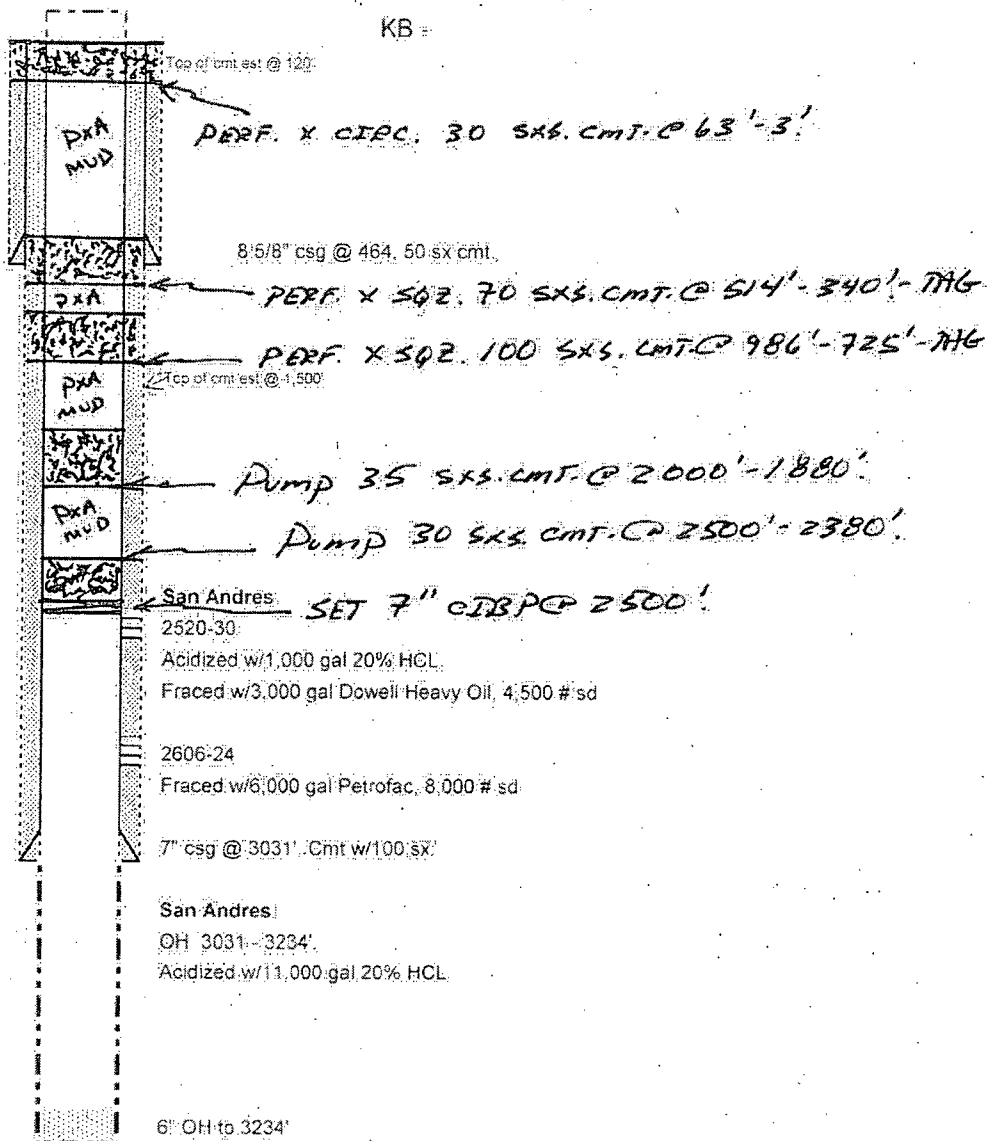 KB =
Top of cmt est @ 120'
PXA
MUD
PERF. X CIRC. 30 SXS. CMT. @ 63'-3'.
8 5/8" csg @ 464, 50 sx cmt.
PERF. X SQZ. 70 SXS. CMT. @ 514'-340'-TAG
PXA
PERF. X SQZ. 100 SXS. CMT. @ 986'-725'-TAG
Top of cmt est @ 1,500'
PXA
MUD
Pump 35 SXS. CMT. @ 2000'-1880'.
PXA
MUD
Pump 30 SXS. CMT. @ 2500'-2380'.
San Andres
SET 7" CIBP @ 2500'.
2520-30
Acidized w/1,000 gal 20% HCL
Fraced w/3,000 gal Dowell Heavy Oil, 4,500 # sd
2606-24
Fraced w/6,000 gal Petrofac, 8,000 # sd
7" csg @ 3031'. Cmt w/100 sx.
San Andres
OH 3031 - 3234'.
Acidized w/11,000 gal 20% HCL
6" OH to 3234'